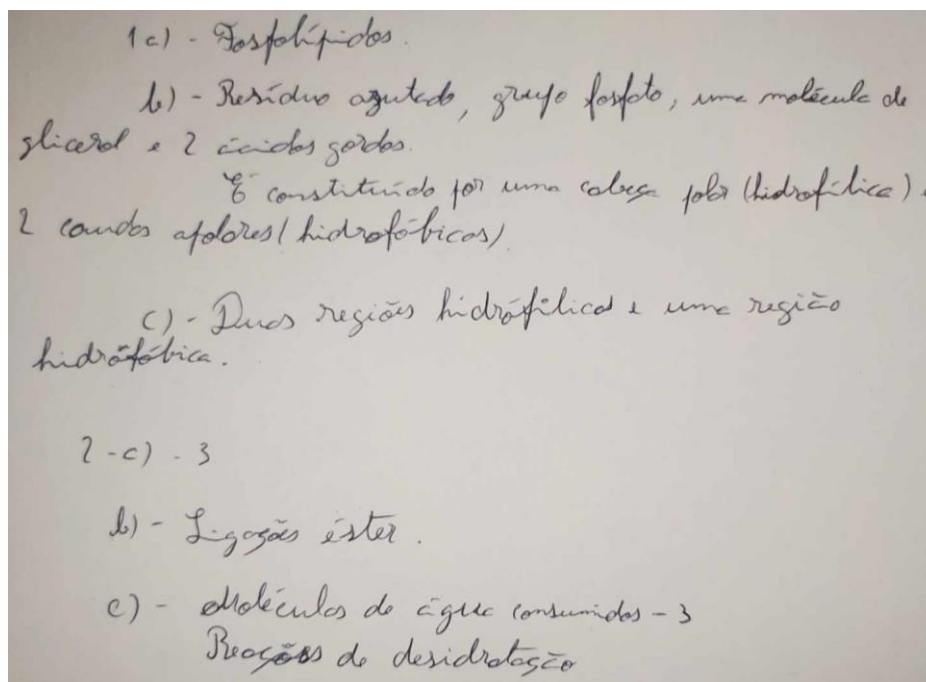 1a) - Fosfolípidos.
b) - Resíduo azutado, grupo fosfato, uma molécula de
glicerol e 2 ácidos gordos.
É constituído por uma cabeça polar (hidrofílica) e
2 caudas apolares (hidrofóbicas)
c) - Duas regiões hidrófílicas e uma região
hidrófóbica.
2-a) - 3
b) - Ligações éster.
c) - Moléculas de água consumidas - 3
Reações de desidratação